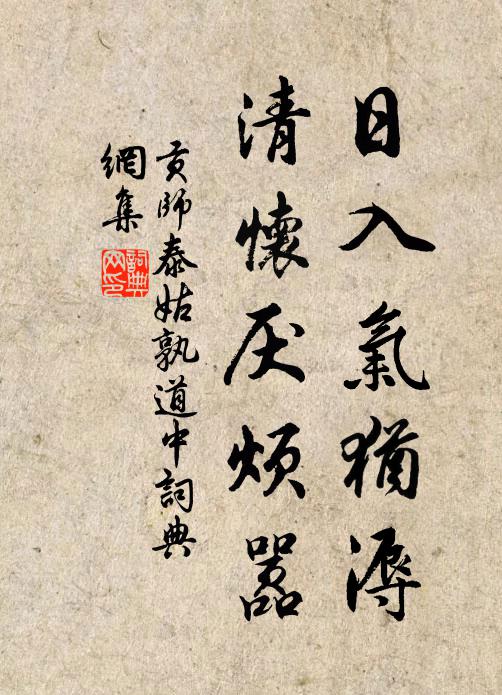 日入氣猶溽
清懷厌煩嚣
貢師泰姑孰道中詞典
網集
詞典
网印